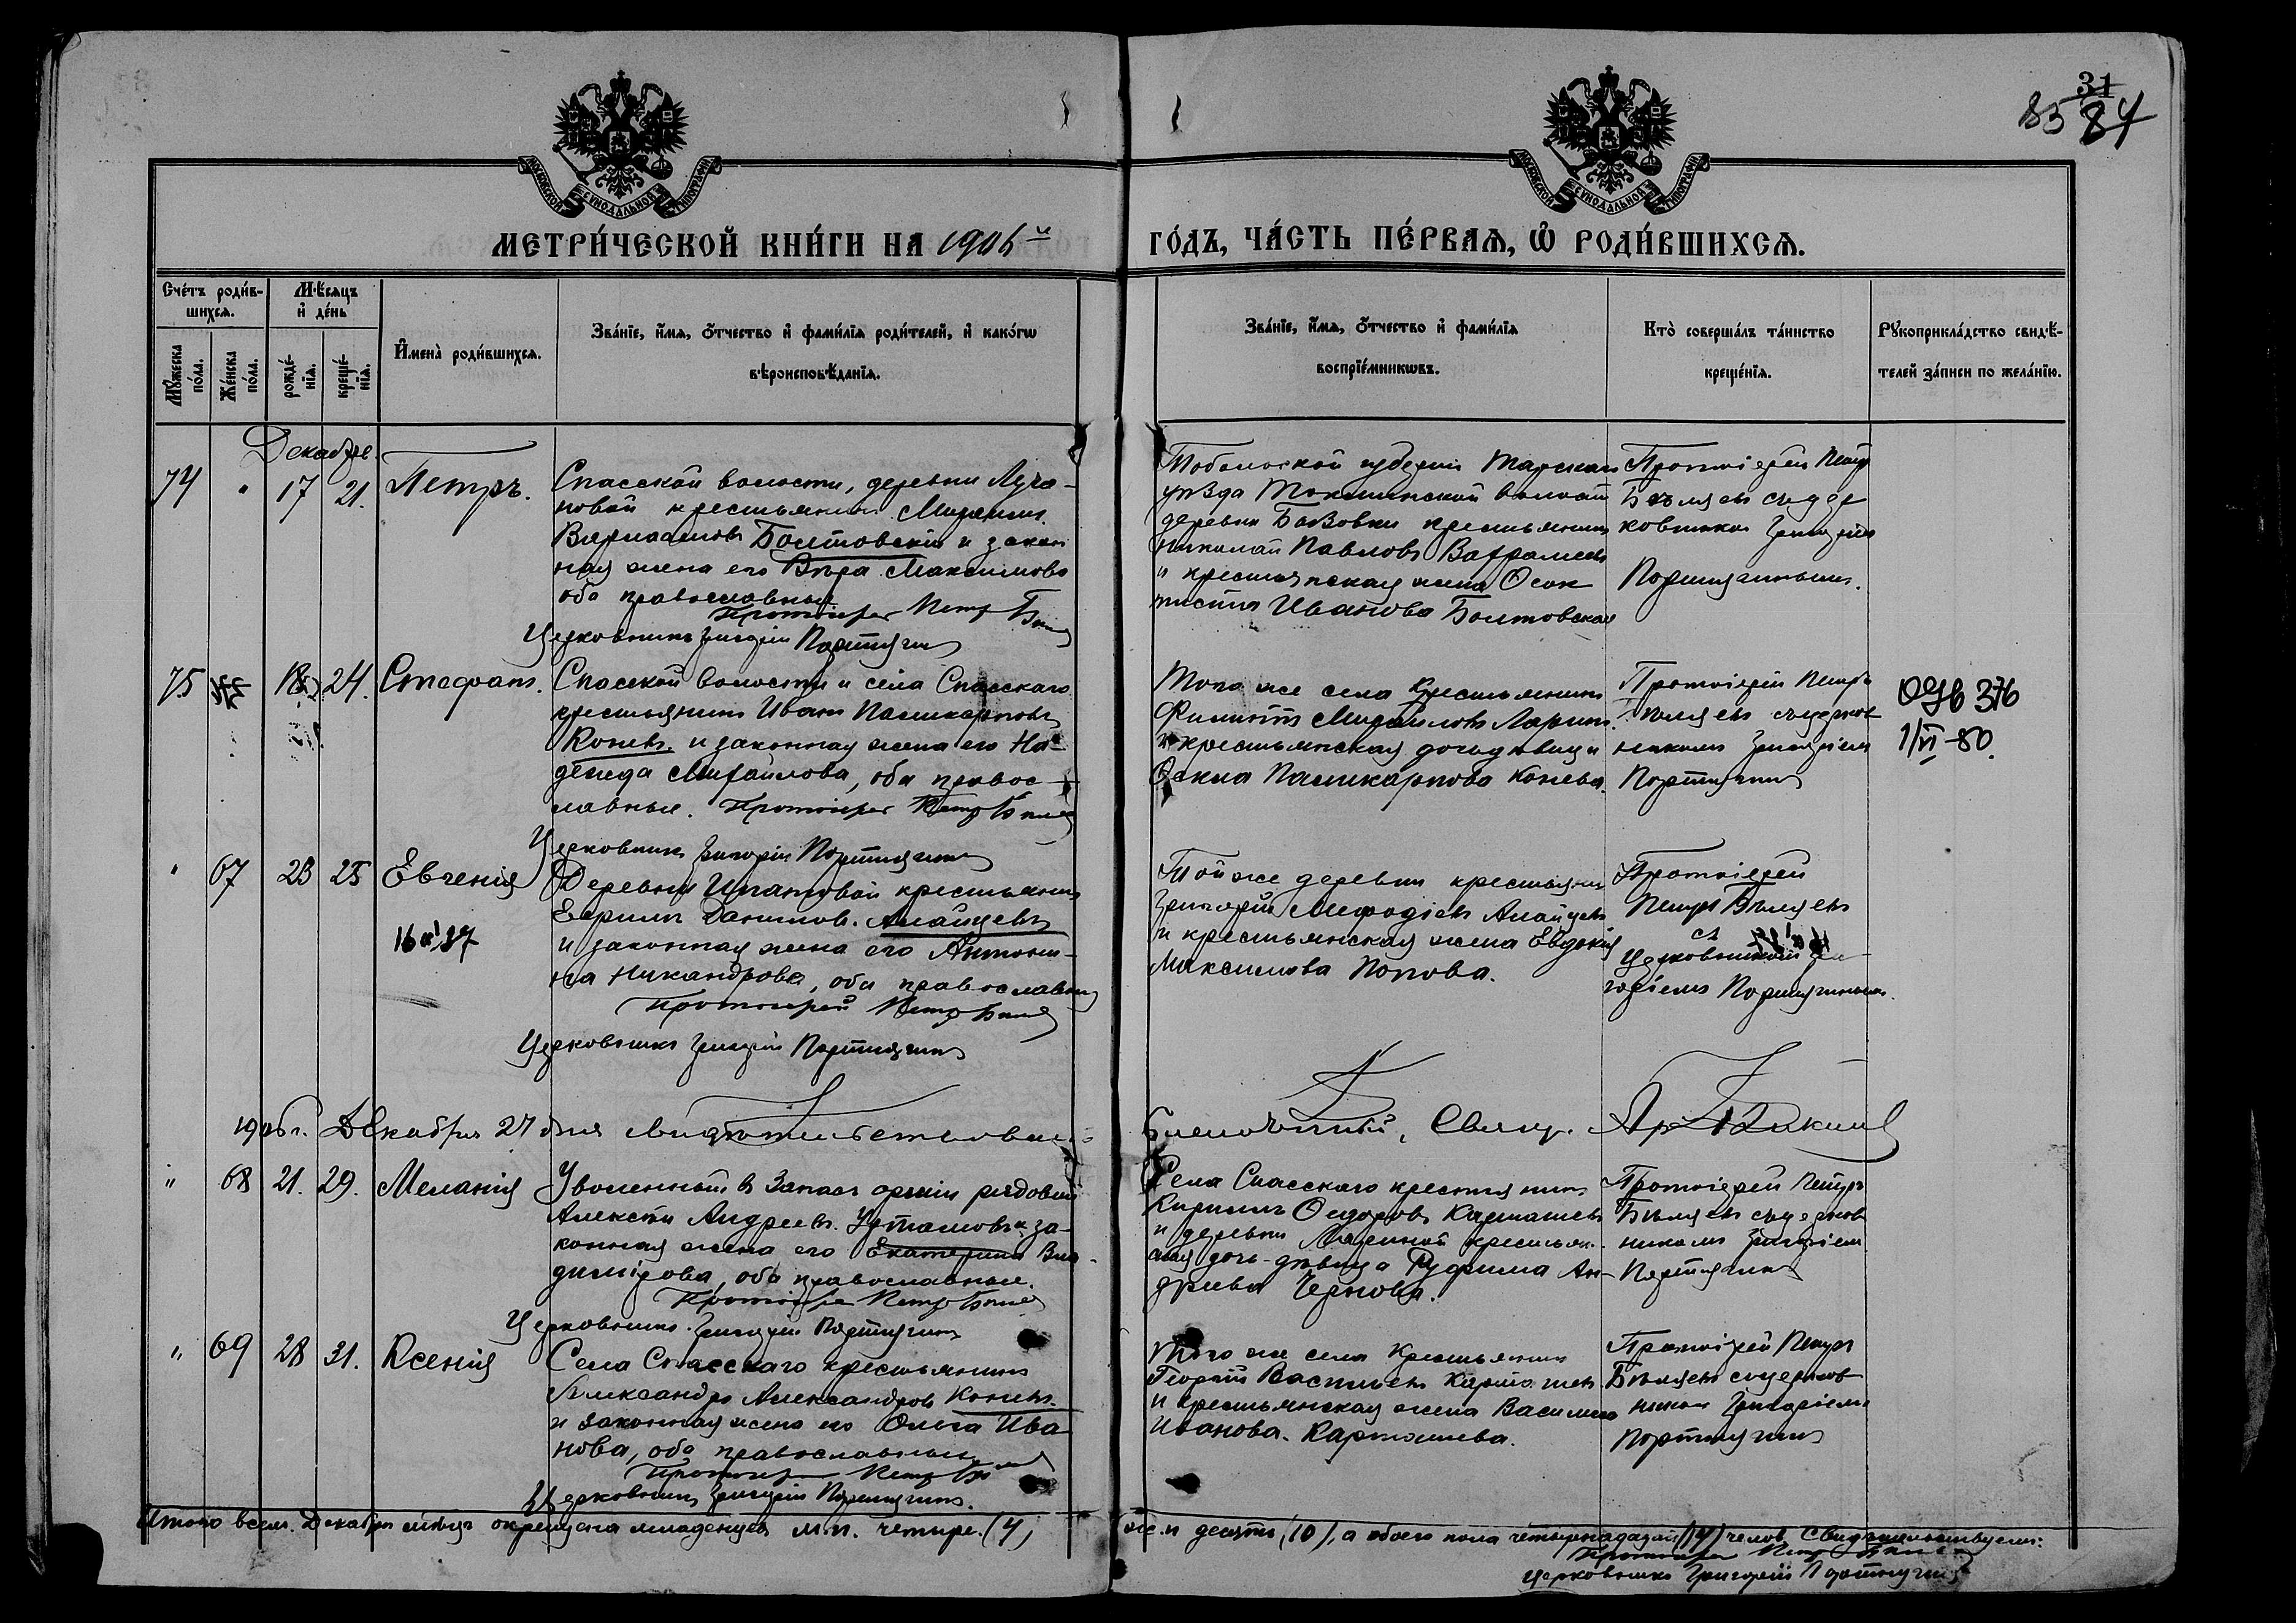 31
83 84
МОСКОВСКОЙ СѴНОДАЛЬНОЙ ТИПОГРАФІИ
МОСКОВСКОЙ СѴНОДАЛЬНОЙ ТИПОГРАФІИ
МЕТРИ́ЧЕСКОЙ КНИ́ГИ НА 1906й
ГО́ДЪ, ЧА́СТЬ ПЕ́РВАЯ, Ѡ҆ РОДИ́ВШИХСЯ.
Сче́тъ роди́в-
шихся.
Мѣ́сяцъ
и҆ де́нь
Мꙋ́жеска по́ла.
Же́нска по́ла.
рожде́-
нїя.
креще́-
нїя.
И҆мена̀ роди́вшихся.
Зва́нїе, и҆́мя, о҆́тчество и҆ фами́лїя роди́телей, и҆ како́гѡ
вѣроисповѣ́данїя.
Зва́нїе, и҆́мя, о҆́тчество и҆ фами́лїя
воспрїе́мникѡвъ.
Кто̀ соверша́лъ та́инство
креще́нїя.
Рꙋкоприкла́дство свидѣ́-
телей за́писи по жела́нїю.
Декабре.
74 " 17 21. Петръ.
Спасской волости, деревни Луча-
новой крестьянинъ
Болтовскій и закон
ная жена его Вѣра Максимова
оба православные
Протоіерей Петр
Церковникъ Григорій Портнягинъ
Тобольской губерніи Тарскаго
уѣзда волости
деревни крестьянинъ
Николай Павловъ
и крестьянская жена
Иванова Болтовская
Протоіерей Петръ
Бѣляевъ съ цер
ковникомъ Григоріемъ
Портнягинымъ.
75 24. Стефанъ.
Спасской волости и села Спасскаго
крестьянинъ Иванъ Поликарповъ
Коневъ. и законная жена его На-
дежда Михайлова, оба правос-
лавные. Протоіерей Петр
Церковникъ Григорій Портнягинъ
Того же села Крестьянинъ
Филиппъ Михайловъ Ларинъ
и крестьянская дочь девица
Поликарпова Конева.
Протоіерей Петръ
Бѣляевъ съ церков
никомъ Григоріемъ
Портнягинъ
376
1/VI-80.
" 67 23 25 Евгенія
16 87
Деревни Ипатовой крестьянинъ
Кирилъ Данилов. Алайцевъ
и законная жена его Антони-
на Никандрова, оба православны
Протоіерей Петр
Церковникъ Григорій Портнягинъ
Той же деревни крестьянинъ
Григорій Меѳодіевъ Алайцевъ
и крестьянская жена Евдокія
Максимова Попова.
Протоіерей
Петръ Бѣляевъ
съ
церковникомъ Гри-
горіемъ Портнягинымъ.
1906 г. Декабря 27 дня
Благочинный, Свящ.
" 68 21. 29. Меланія
Уволенный въ Запасъ арміи рядовой
Алексѣй Андреевъ и за-
конная жена его Екатерина Вла-
димірова, оба православные.
Протоіерей Петр
Церковникъ Григорій Портнягинъ
Села Спасскаго крестьянинъ
Кирилъ Карташевъ
и деревни крестьян-
ская дочь-дѣвица Руфина Ан-
дреева Чернова.
Протоіерей Петръ
Бѣляевъ съ церков
никомъ Григоріем
Портнягинъ
" 69 28 31. Ксенія
Села Спасскаго крестьянинъ
Александръ Александровъ Коневъ.
и законная жена его Ольга Ива
нова, оба православные
Протоіерей Петр
Церковникъ Григорій Портнягинъ.
Того же села Крестьянинъ
Георгій Васильевъ Карташев
и крестьянская жена Василиса
Иванова. Карташева.
Протоіерей Петръ
Бѣляевъ съ церков
никомъ Григоріемъ
Портнягинъ
Итого всего. Декабрѣ мѣсяцѣ окрещено младенцевъ м.п. четыре (4)
ж.п десять (10), а обоего пола четырнадцать (14) челов. Свидѣтельствуемъ:
Протоіерей Петр
Церковникъ Григорій Портнягинъ